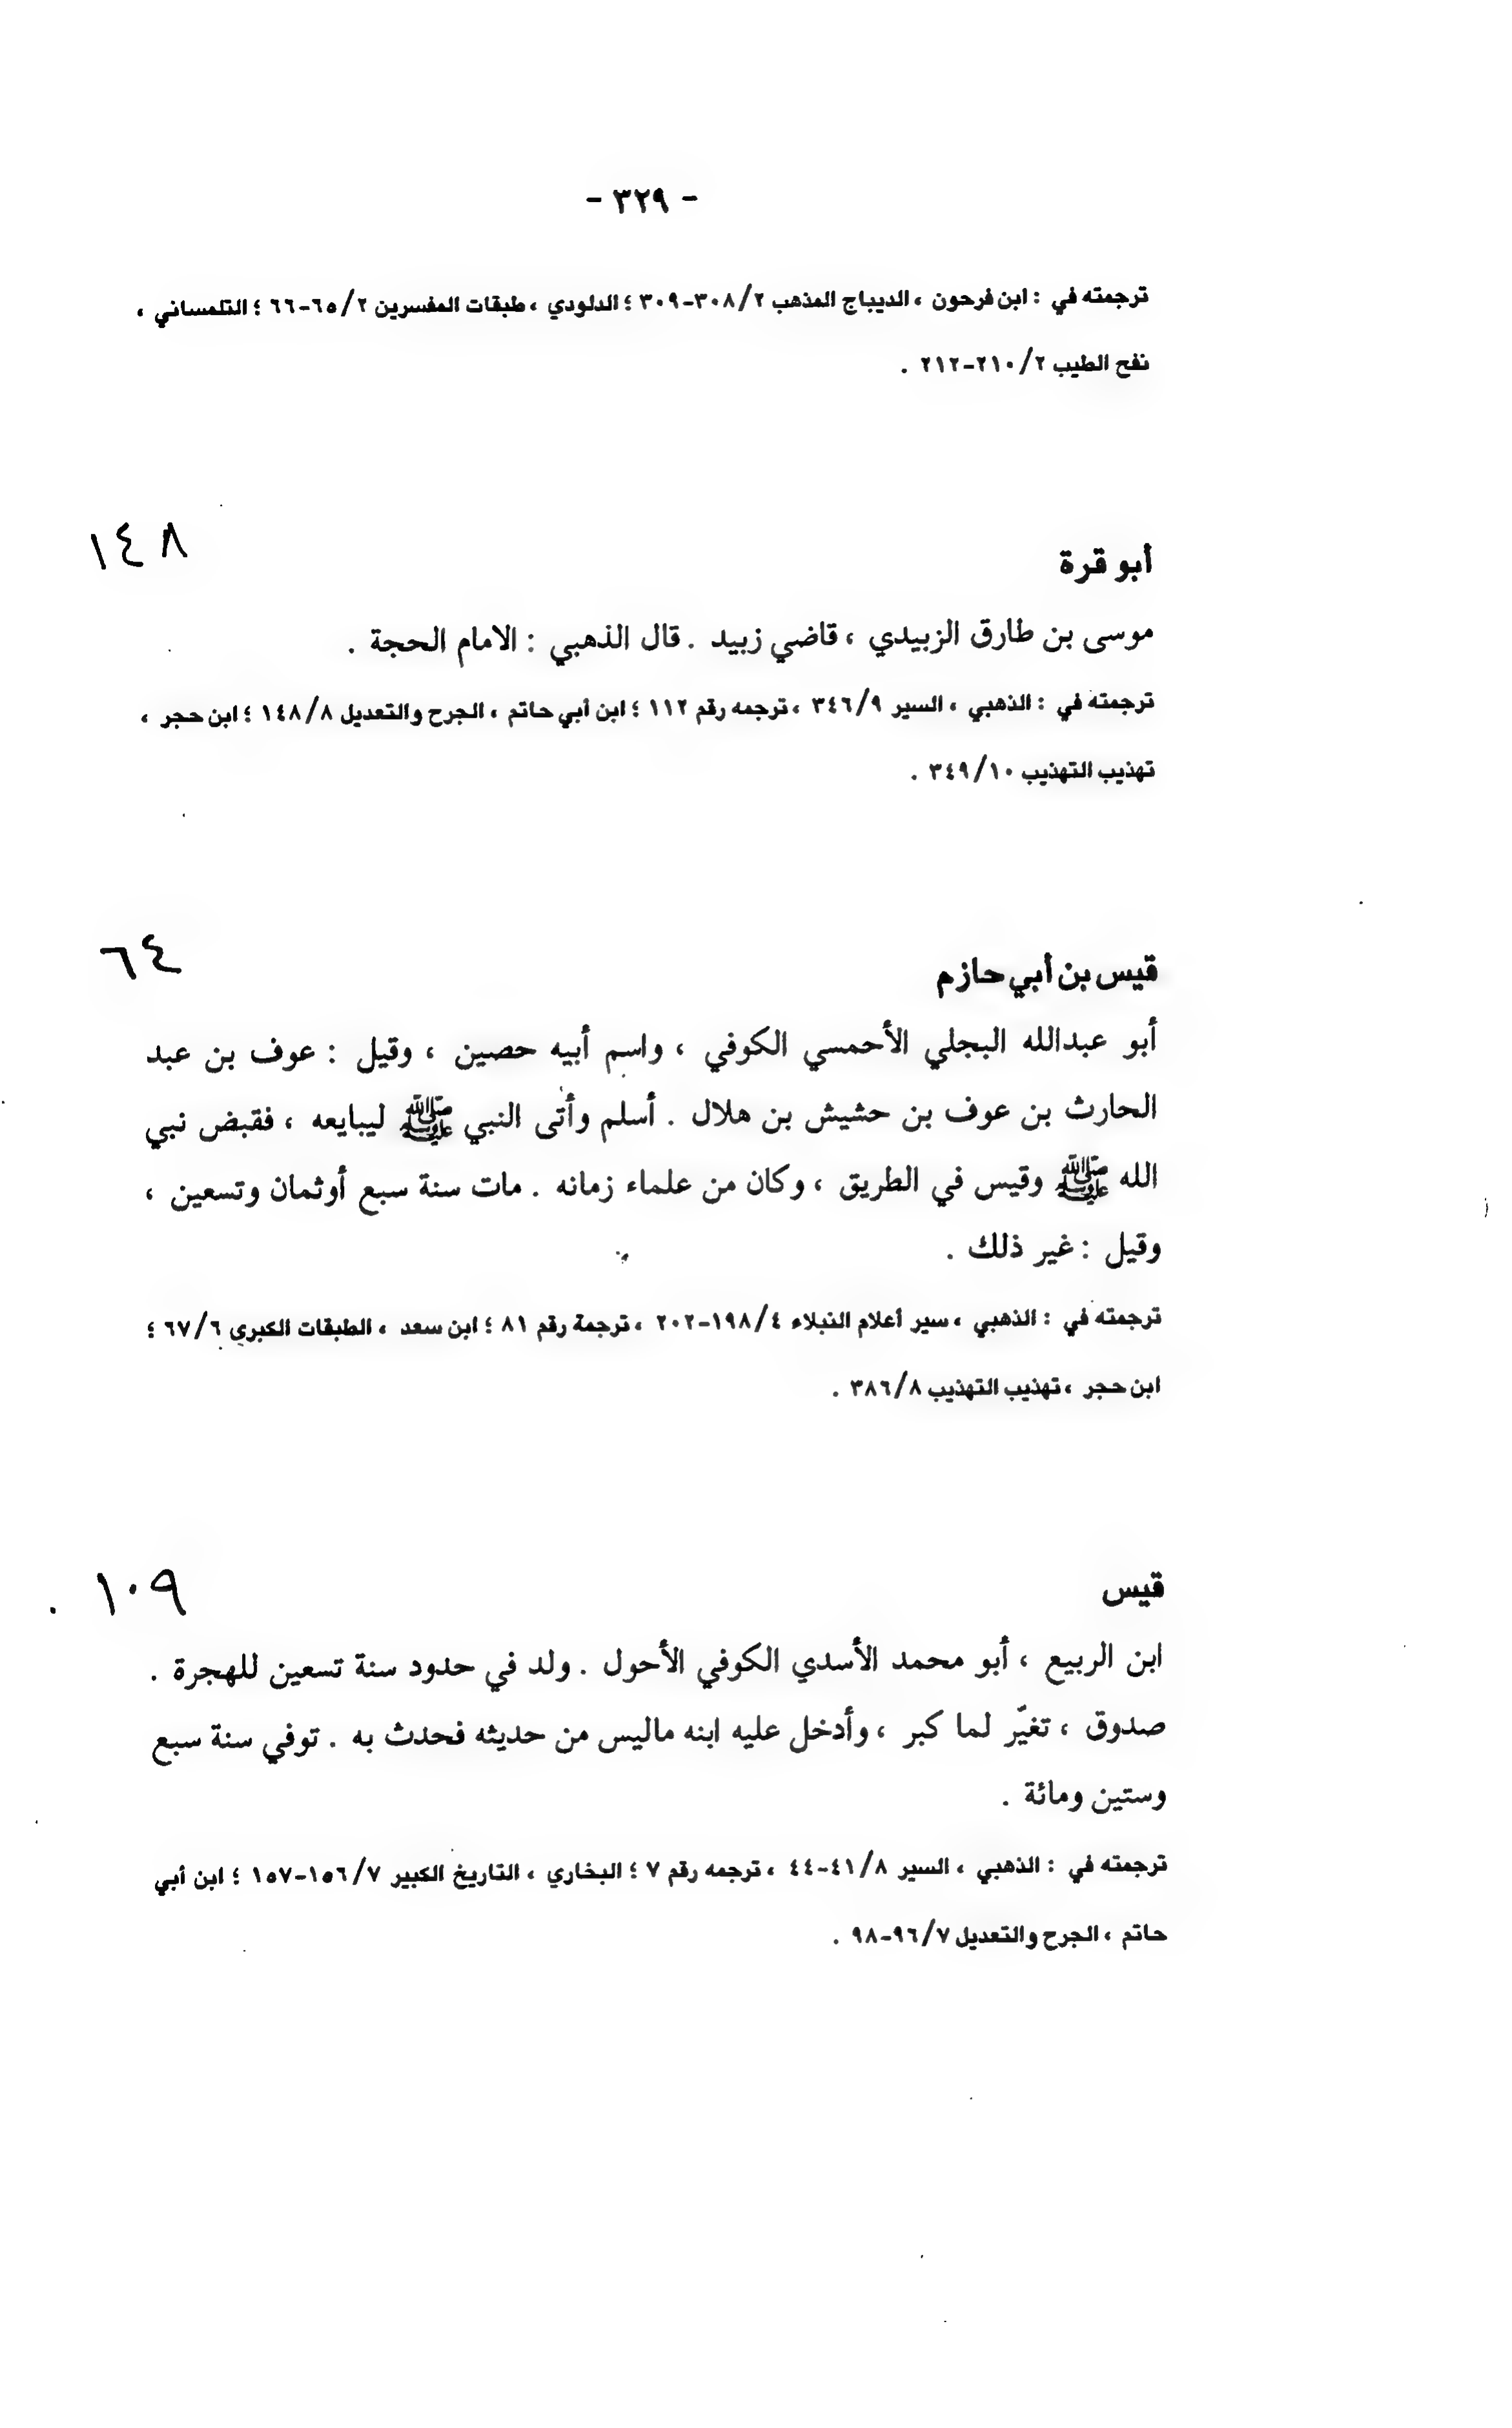 - ٣٢٩ -
ترجمته في : ابن فرحون ، الديباج المذهب ٣٠٨/٢-٣٠٩ ؛ الدلودي ، طبقات المفسرين ٦٥/٢-٦٦ ؛ التلمساني ،
نفح الطيب ٢١٠/٢-٢١٢ .
أبو قرة ١٤٨
موسى بن طارق الزبيدي ، قاضي زبيد . قال الذهبي : الامام الحجة .
ترجمته في : الذهبي ، السير ٣٤٦/٩ ، ترجمه رقم ١١٢ ؛ ابن أبي حاتم ، الجرح والتعديل ١٤٨/٨ ؛ ابن حجر ،
تهذيب التهذيب ٣٤٩/١٠ .
قيس بن أبي حازم ٦٤
أبو عبدالله البجلي الأحمسي الكوفي ، واسم أبيه حصين ، وقيل : عوف بن عبد
الحارث بن عوف بن حشيش بن هلال . أسلم وأتى النبي ﷺ ليبايعه ، فقبض نبي
الله ﷺ وقيس في الطريق ، وكان من علماء زمانه . مات سنة سبع أوثمان وتسعين ،
وقيل : غير ذلك .
ترجمته في : الذهبي ، سير أعلام النبلاء ١٩٨/٤-٢٠٢ ، ترجمة رقم ٨١ ؛ ابن سعد ، الطبقات الكبرى ٦٧/٦ ؛
ابن حجر ، تهذيب التهذيب ٣٨٦/٨ .
قيس ١٠٩
ابن الربيع ، أبو محمد الأسدي الكوفي الأحول . ولد في حدود سنة تسعين للهجرة .
صدوق ، تغيّر لما كبر ، وأدخل عليه ابنه ماليس من حديثه فحدث به . توفي سنة سبع
وستين ومائة .
ترجمته في : الذهبي ، السير ٤١/٨-٤٤ ، ترجمه رقم ٧ ؛ البخاري ، التاريخ الكبير ١٥٦/٧-١٥٧ ؛ ابن أبي
حاتم ، الجرح والتعديل ٩٦/٧-٩٨ .